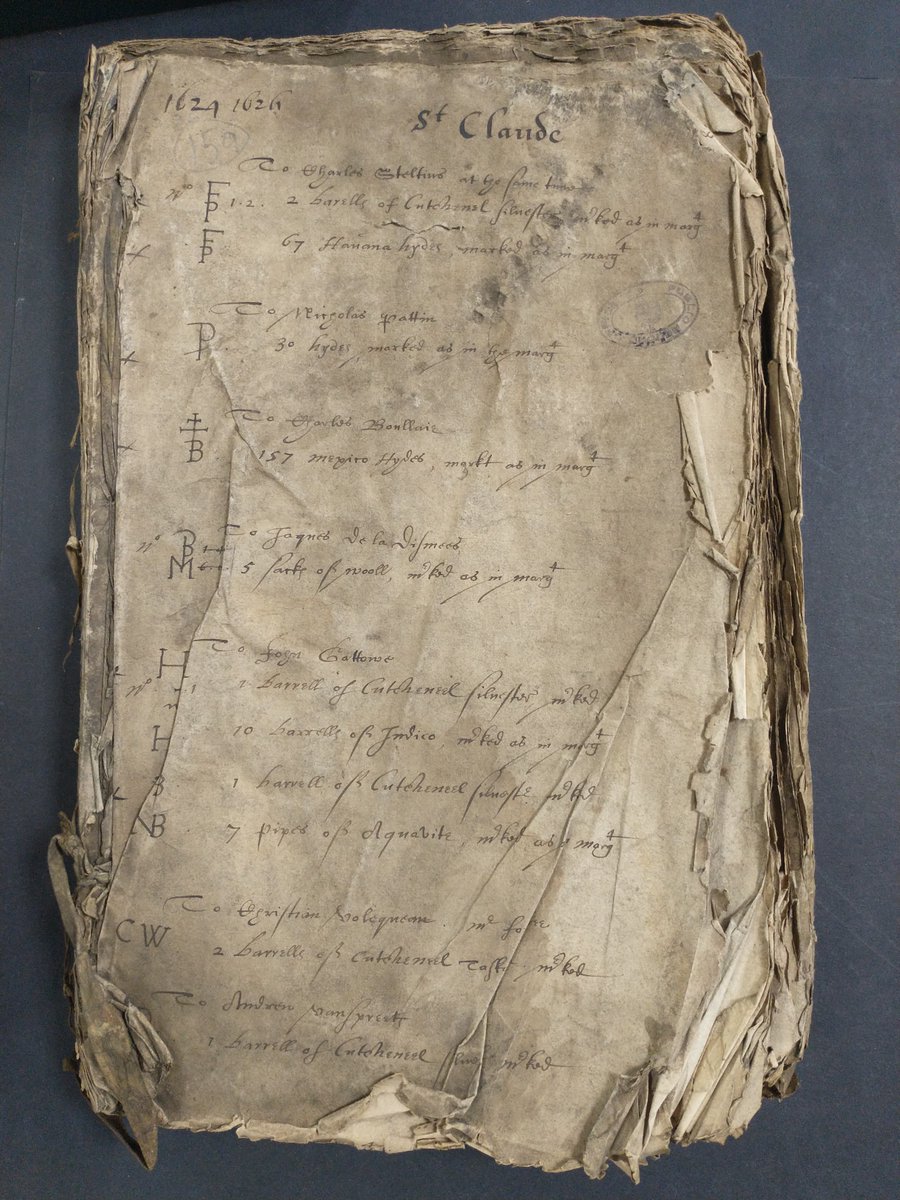 1624 1626
St Claude
152
To Charles Steltius at the same time
No FP 1.2. 2 barells of Cutchenel silvester mked as in marg
FP 67 Havana hydes, marked as in marg
To Nicholas Pattin
P 30 hydes, marked as in the marg
To Charles Boullair
B 157 mexico Hydes, markt as in marg
To Jaques de la
No B M 5 sacks of wooll, mked as in marg
To John Gattowe
H
No 1 1 barrell of Cutcheneil silvester mked
H 10 barrells of Indico, mked as in marg
B 1 barrell of Cutcheneel silvestr mked
NB 7 Pipes of Aquavite, mked as marg
To Christian
CW 2 barrells of Cutcheneel mked
To Andrew vanspreett
1 barrell of Cutcheneel mked